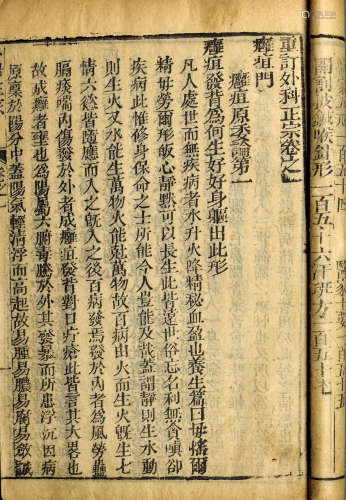 重訂外科正宗卷之一
癰疽門
癰疽原委論第一
癰疽發背爲何生好好身軀出此形
凡人處世而無疾病者水升火降精秘血盈也養生篇曰毋搖爾
精毋勞爾形皈心靜黙可以長生此皆遠世俗忘名利無貪嗔卻
疾病此惟修身保命之士所能今人豈能及哉蓋謂靜則生水動
則生火又水能生萬物火能尅萬物故百病由火而生火旣生七
情六慾皆隨應而入之旣入之後百病發焉發於內者爲風勞蠱
膈痰喘內傷發於外者成癰疽發背對口疔瘡此皆言其大畧也
故成癰者壅也爲陽屬六腑毒騰於外其發暴而所患浮沉因病
原稟於陽分中蓋陽氣輕清浮而高起故易腫易膿易腐易斂
開割披鍼喉針形
一百五十六汗斑方
一百五十七